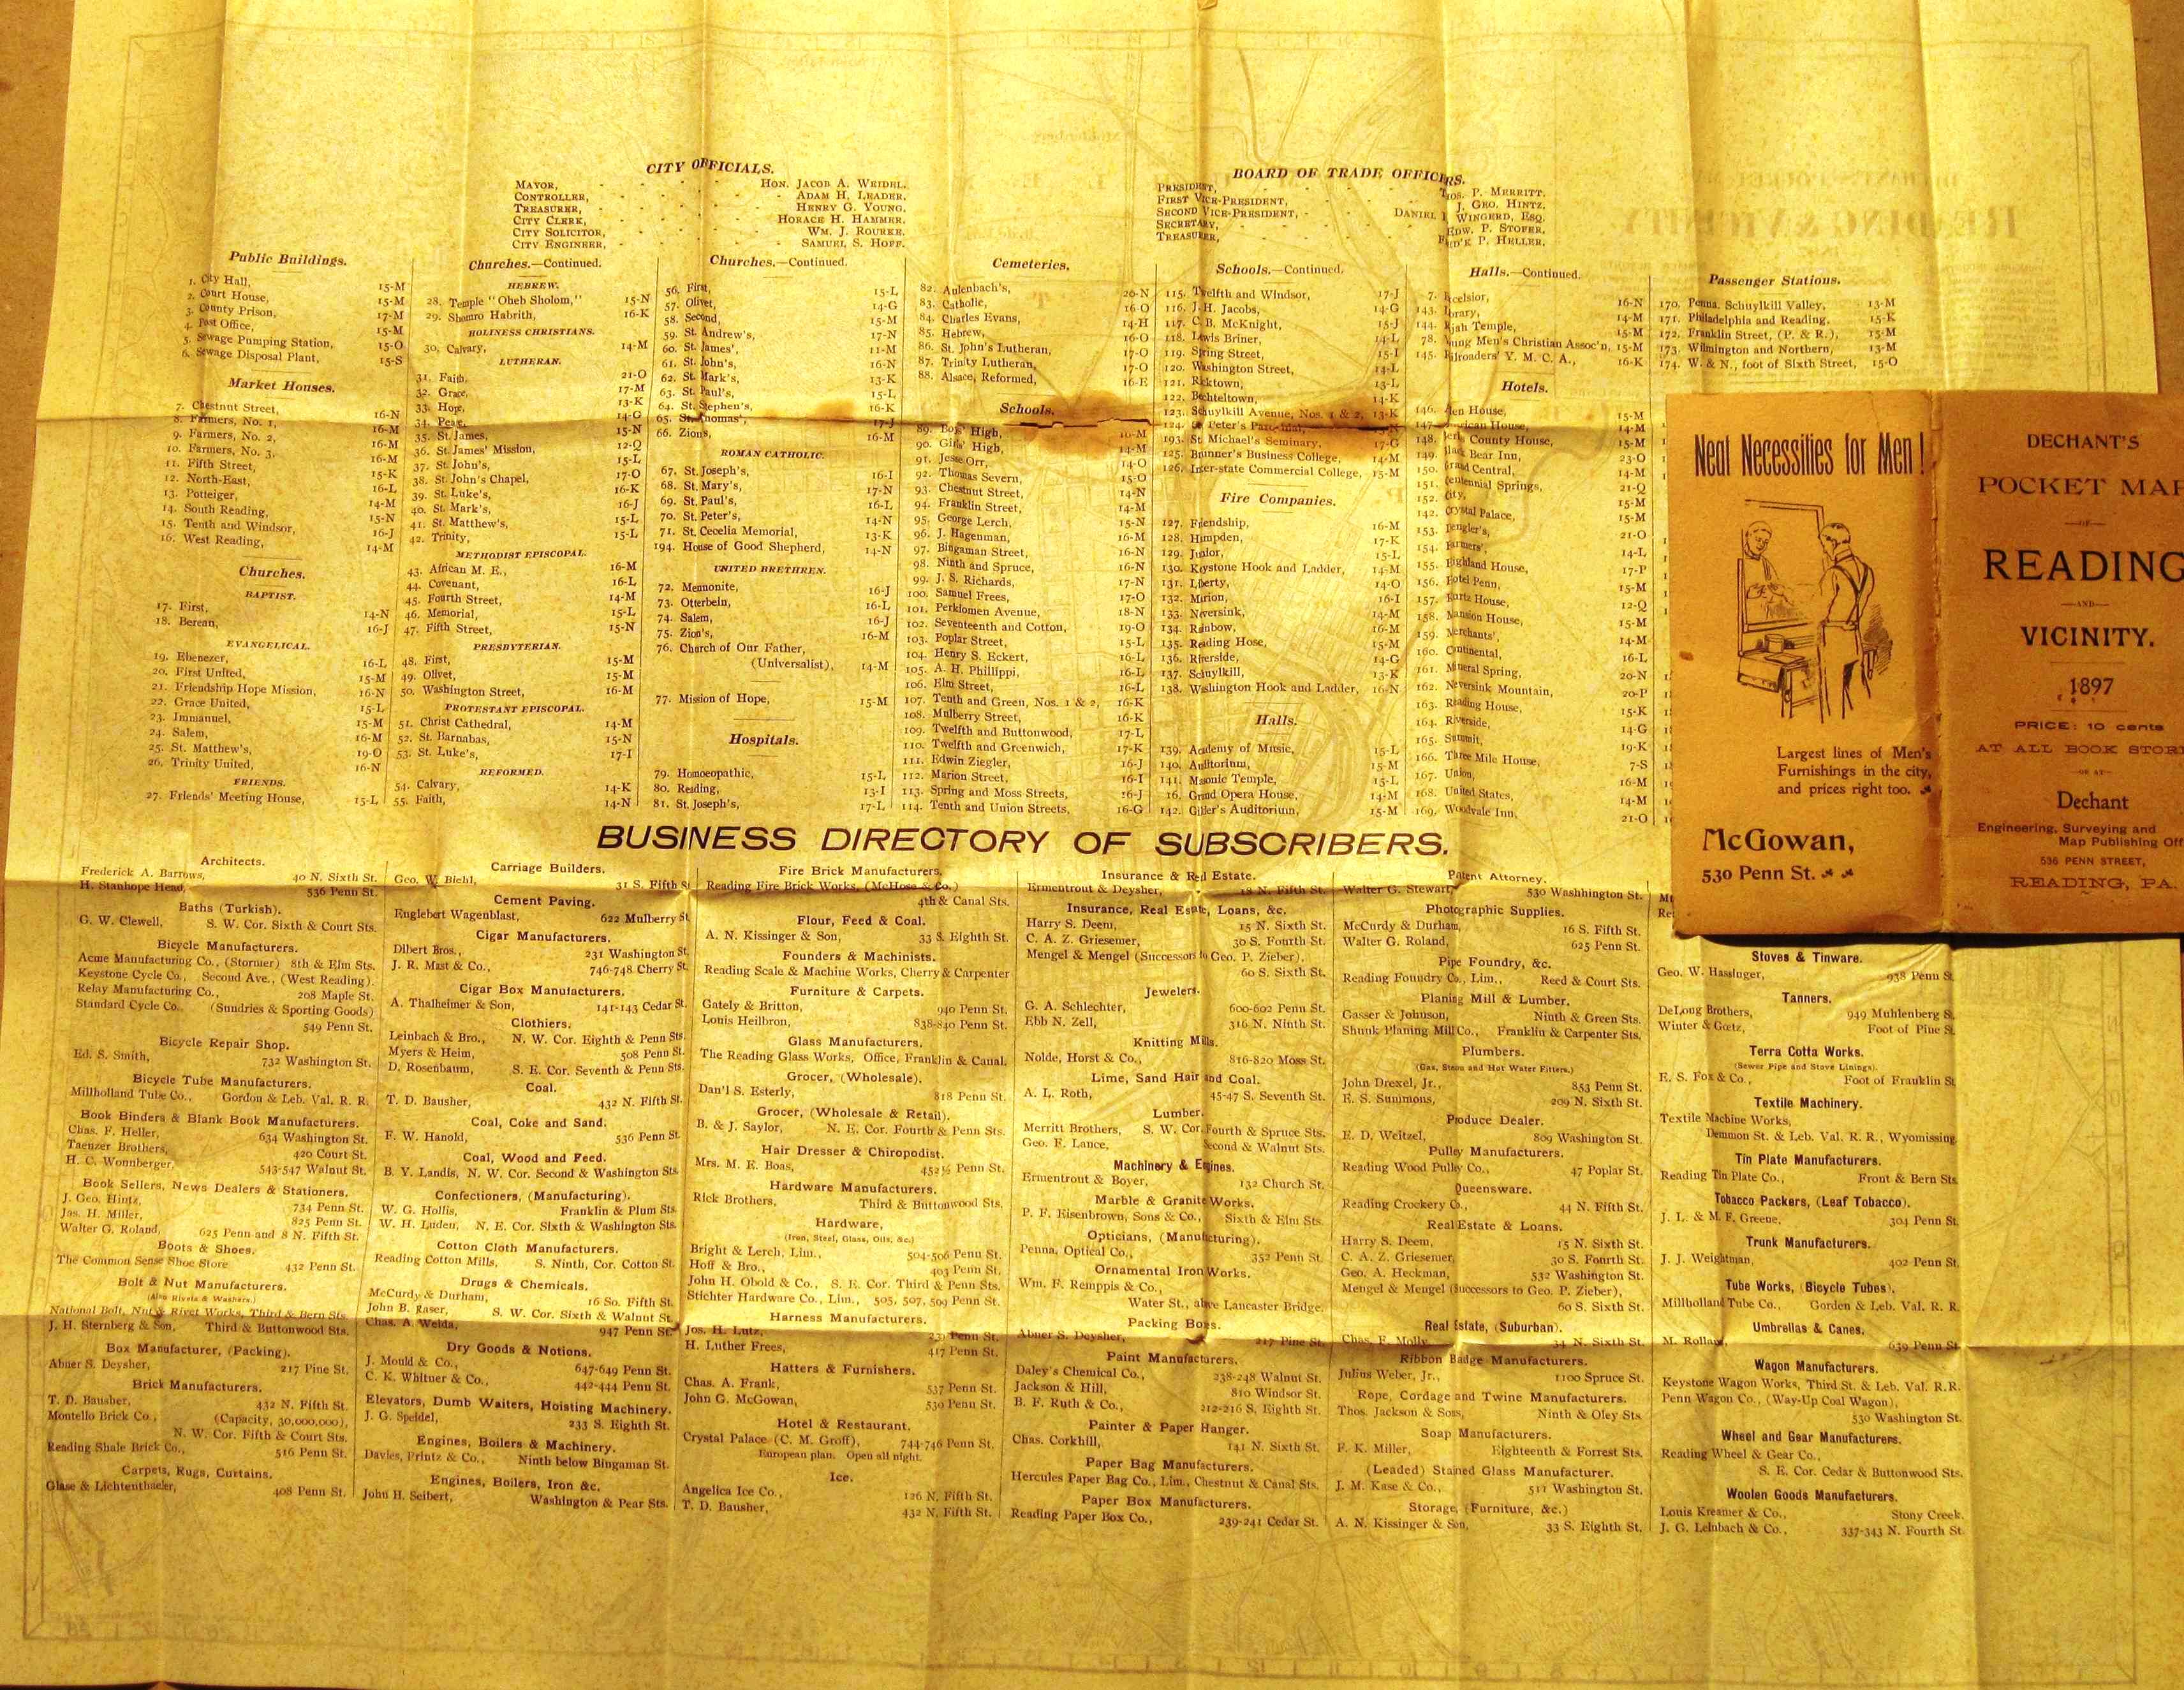 CITY OFFICIALS.
MAYOR, HON. JACOB A. WEIDEL.
CONTROLLER, ADAM H. LEADER.
TREASURER, HENRY G. YOUNG.
CITY CLERK, HORACE H. HAMMER.
CITY SOLICITOR, WM. J. ROURKE.
CITY ENGINEER, SAMUEL S. HOFF.
BOARD OF TRADE OFFICERS.
PRESIDENT, THOS. P. MERRITT.
FIRST VICE-PRESIDENT, J. GEO. HINTZ.
SECOND VICE-PRESIDENT, DANIEL WINGERD, ESQ.
SECRETARY, EDW. P. STOFER.
TREASURER, FRED'K P. HELLER.
Public Buildings.
1. City Hall, 15-M
2. Court House, 15-M
3. County Prison, 17-M
4. Post Office, 15-M
5. Sewage Pumping Station, 15-O
6. Sewage Disposal Plant, 15-S
Market Houses.
7. Chestnut Street, 16-N
8. Farmers, No. 1, 16-M
9. Farmers, No. 2, 16-M
10. Farmers, No. 3, 16-M
11. Fifth Street, 15-K
12. North-East, 16-L
13. Potteiger, 14-M
14. South Reading, 15-N
15. Tenth and Windsor, 16-J
16. West Reading, 14-M
Churches.
BAPTIST.
17. First, 14-N
18. Berean, 16-J
EVANGELICAL.
19. Ebenezer, 16-L
20. First United, 15-M
21. Friendship Hope Mission, 16-N
22. Grace United, 15-L
23. Immanuel, 15-M
24. Salem, 16-M
25. St. Matthew's, 19-O
26. Trinity United, 16-N
FRIENDS.
27. Friends' Meeting House, 15-L
Churches.—Continued.
HEBREW.
28. Temple "Oheb Sholom," 15-N
29. Shomro Habrith, 16-K
HOLINESS CHRISTIANS.
30. Calvary, 14-M
LUTHERAN.
31. Faith, 21-O
32. Grace, 17-M
33. Hope, 13-K
34. Peace, 14-G
35. St. James, 15-N
36. St. James' Mission, 12-Q
37. St. John's, 15-L
38. St. John's Chapel, 17-O
39. St. Luke's, 16-K
40. St. Mark's, 16-J
41. St. Matthew's, 15-L
42. Trinity, 15-L
METHODIST EPISCOPAL.
43. African M. E., 16-M
44. Covenant, 16-L
45. Fourth Street, 14-M
46. Memorial, 15-L
47. Fifth Street, 15-N
PRESBYTERIAN.
48. First, 15-M
49. Olivet, 15-M
50. Washington Street, 16-M
PROTESTANT EPISCOPAL.
51. Christ Cathedral, 14-M
52. St. Barnabas, 15-N
53. St. Luke's, 17-I
REFORMED.
54. Calvary, 14-K
55. Faith, 14-N
Churches.—Continued.
56. First, 15-L
57. Olivet, 14-G
58. Second, 15-M
59. St. Andrew's, 17-N
60. St. James', 11-M
61. St. John's, 16-N
62. St. Mark's, 13-K
63. St. Paul's, 15-L
64. St. Stephen's, 16-K
65. St. Thomas', 17-J
66. Zion's, 16-M
ROMAN CATHOLIC.
67. St. Joseph's, 16-I
68. St. Mary's, 17-N
69. St. Paul's, 16-L
70. St. Peter's, 14-N
71. St. Cecelia Memorial, 13-K
194. House of Good Shepherd, 14-N
UNITED BRETHREN.
72. Mennonite, 16-J
73. Otterbein, 16-L
74. Salem, 16-J
75. Zion's, 16-M
76. Church of Our Father,
(Universalist), 14-M
77. Mission of Hope, 15-M
Hospitals.
79. Homoeopathic, 15-L
80. Reading, 13-I
81. St. Joseph's, 17-L
Cemeteries.
82. Aulenbach's, 20-N
83. Catholic, 16-O
84. Charles Evans, 14-H
85. Hebrew, 16-O
86. St. John's Lutheran, 17-O
87. Trinity Lutheran, 17-O
88. Alsace, Reformed, 16-E
Schools.
89. Boys' High, 16-M
90. Girls' High, 14-M
91. Jesse Orr, 14-O
92. Thomas Severn, 15-O
93. Chestnut Street, 14-N
94. Franklin Street, 14-M
95. George Lerch, 15-N
96. J. Hagenman, 16-M
97. Bingaman Street, 16-N
98. Ninth and Spruce, 16-N
99. J. S. Richards, 17-N
100. Samuel Frees, 17-O
101. Perkiomen Avenue, 18-N
102. Seventeenth and Cotton, 19-O
103. Poplar Street, 15-L
104. Henry S. Eckert, 16-L
105. A. H. Phillippi, 16-L
106. Elm Street, 16-L
107. Tenth and Green, Nos. 1 & 2, 16-K
108. Mulberry Street, 16-K
109. Twelfth and Buttonwood, 17-L
110. Twelfth and Greenwich, 17-K
111. Edwin Ziegler, 16-J
112. Marion Street, 16-I
113. Spring and Moss Streets, 16-J
114. Tenth and Union Streets, 16-G
Schools.—Continued.
115. Twelfth and Windsor, 17-J
116. J. H. Jacobs, 14-G
117. C. B. McKnight, 15-J
118. Lewis Briner, 14-L
119. Spring Street, 15-I
120. Washington Street, 14-L
121. Ricktown, 13-L
122. Bechteltown, 14-K
123. Schuylkill Avenue, Nos. 1 & 2, 13-K
124. St. Peter's Parochial,
193. St. Michael's Seminary, 17-G
125. Brunner's Business College, 14-M
126. Inter-state Commercial College, 15-M
Fire Companies.
127. Friendship, 16-M
128. Hampden, 17-K
129. Junior, 15-L
130. Keystone Hook and Ladder, 14-M
131. Liberty, 14-O
132. Marion, 16-I
133. Neversink, 14-M
134. Rainbow, 16-M
135. Reading Hose, 15-M
136. Riverside, 14-G
137. Schuylkill, 13-K
138. Washington Hook and Ladder, 16-N
Halls.
139. Academy of Music, 15-L
140. Auditorium, 15-M
141. Masonic Temple, 15-L
16. Grand Opera House, 14-M
142. Giller's Auditorium, 15-M
Halls.—Continued.
7. Excelsior, 16-N
143. Library, 14-M
144. Rajah Temple, 15-M
78. Young Men's Christian Assoc'n, 15-M
145. Railroaders' Y. M. C. A., 16-K
Hotels.
146. House, 15-M
147. American House, 14-M
148. Berks County House, 15-M
149. Black Bear Inn, 23-O
150. Grand Central, 14-M
151. Centennial Springs, 21-Q
152. City, 15-M
142. Crystal Palace, 15-M
153. Dengler's, 21-O
154. Farmers', 14-L
155. Highland House, 17-P
156. Hotel Penn, 15-M
157. Kurtz House, 12-Q
158. Mansion House, 15-M
159. Merchants', 14-M
160. Continental, 16-L
161. Mineral Spring, 20-N
162. Neversink Mountain, 20-P
163. Reading House, 15-K
164. Riverside, 14-G
165. Summit, 19-K
166. Three Mile House, 7-S
167. Union, 16-M
168. United States, 14-M
169. Woodvale Inn, 21-O
Passenger Stations.
170. Penna. Schuylkill Valley, 13-M
171. Philadelphia and Reading, 15-K
172. Franklin Street, (P. & R.), 15-M
173. Wilmington and Northern, 13-M
174. W. & N., foot of Sixth Street, 15-O
Neat Necessities for Men!
Largest lines of Men's
Furnishings in the city,
and prices right too.
McGowan,
530 Penn St.
DECHANT'S
POCKET MAP
—OF—
READING
—AND—
VICINITY.
1897
PRICE: 10 cents
AT ALL BOOK STOR
—OR AT—
Dechant
Engineering, Surveying and
Map Publishing Off
536 PENN STREET,
READING, PA.
BUSINESS DIRECTORY OF SUBSCRIBERS.
Architects.
Frederick A. Barrows, 40 N. Sixth St.
H. Stanhope Head, 536 Penn St.
Baths (Turkish).
G. W. Clewell, S. W. Cor. Sixth & Court Sts.
Bicycle Manufacturers.
Acme Manufacturing Co., (Stormer) 8th & Elm Sts.
Keystone Cycle Co., Second Ave., (West Reading).
Relay Manufacturing Co., 208 Maple St.
Standard Cycle Co., (Sundries & Sporting Goods)
549 Penn St.
Bicycle Repair Shop.
Ed. S. Smith, 732 Washington St.
Bicycle Tube Manufacturers.
Millholland Tube Co., Gordon & Leb. Val. R. R.
Book Binders & Blank Book Manufacturers.
Chas. F. Heller, 634 Washington St.
Taenzer Brothers, 420 Court St.
H. C. Wonnberger, 543-547 Walnut St.
Book Sellers, News Dealers & Stationers.
J. Geo. Hintz, 734 Penn St.
Jas. H. Miller, 825 Penn St.
Walter G. Roland, 625 Penn and 8 N. Fifth St.
Boots & Shoes.
The Common Sense Shoe Store 432 Penn St.
Bolt & Nut Manufacturers.
(Also Rivets & Washers.)
National Bolt, Nut & Rivet Works, Third & Bern Sts.
J. H. Sternberg & Son, Third & Buttonwood Sts.
Box Manufacturer, (Packing).
Abner S. Deysher, 217 Pine St.
Brick Manufacturers.
T. D. Bausher, 432 N. Fifth St.
Montello Brick Co., (Capacity, 30,000,000),
N. W. Cor. Fifth & Court Sts.
Reading Shale Brick Co., 516 Penn St.
Carpets, Rugs, Curtains.
Glase & Lichtenthaeler, 408 Penn St.
Carriage Builders.
Geo. W. Biehl, 31 S. Fifth St
Cement Paving.
Englebert Wagenblast, 622 Mulberry St.
Cigar Manufacturers.
Dibert Bros., 231 Washington St.
J. R. Mast & Co., 746-748 Cherry St.
Cigar Box Manufacturers.
A. Thalheimer & Son, 141-143 Cedar St.
Clothiers.
Leinbach & Bro., N. W. Cor. Eighth & Penn Sts.
Myers & Heim, 508 Penn St.
D. Rosenbaum, S. E. Cor. Seventh & Penn Sts.
Coal.
T. D. Bausher, 432 N. Fifth St.
Coal, Coke and Sand.
F. W. Hanold, 536 Penn St.
Coal, Wood and Feed.
B. Y. Landis, N. W. Cor. Second & Washington Sts.
Confectioners, (Manufacturing).
W. G. Hollis, Franklin & Plum Sts.
W. H. Luden, N. E. Cor. Sixth & Washington Sts.
Cotton Cloth Manufacturers.
Reading Cotton Mills, S. Ninth, Cor. Cotton St.
Drugs & Chemicals.
McCurdy & Durham, 16 So. Fifth St.
John B. Raser, S. W. Cor. Sixth & Walnut St.
Chas. A. Welda, 947 Penn St.
Dry Goods & Notions.
J. Mould & Co., 647-649 Penn St.
C. K. Whitner & Co., 442-444 Penn St.
Elevators, Dumb Waiters, Hoisting Machinery.
J. G. Speidel, 233 S. Eighth St.
Engines, Boilers & Machinery.
Davies, Printz & Co., Ninth below Bingaman St.
Engines, Boilers, Iron &c.
John H. Seibert, Washington & Pear Sts.
Fire Brick Manufacturers.
Reading Fire Brick Works, (McHose & Co.)
4th & Canal Sts.
Flour, Feed & Coal.
A. N. Kissinger & Son, 33 S. Eighth St.
Founders & Machinists.
Reading Scale & Machine Works, Cherry & Carpenter
Furniture & Carpets.
Gately & Britton, 940 Penn St.
Louis Heilbron, 838-840 Penn St.
Glass Manufacturers.
The Reading Glass Works, Office, Franklin & Canal.
Grocer, (Wholesale).
Dan'l S. Esterly, 818 Penn St.
Grocer, (Wholesale & Retail).
B. & J. Saylor, N. E. Cor. Fourth & Penn Sts.
Hair Dresser & Chiropodist.
Mrs. M. E. Boas, 452½ Penn St.
Hardware Manufacturers.
Rick Brothers, Third & Buttonwood Sts.
Hardware,
(Iron, Steel, Glass, Oils, &c.)
Bright & Lerch, Lim., 504-506 Penn St.
Hoff & Bro., 403 Penn St.
John H. Obold & Co., S. E. Cor. Third & Penn Sts.
Stichter Hardware Co., Lim., 505, 507, 509 Penn St.
Harness Manufacturers.
Jos. H. Lutz, Penn St.
H. Luther Frees, 417 Penn St.
Hatters & Furnishers.
Chas. A. Frank, 537 Penn St.
John G. McGowan, 530 Penn St.
Hotel & Restaurant.
Crystal Palace (C. M. Groff), 744-746 Penn St.
European plan. Open all night.
Ice.
Angelica Ice Co., 126 N. Fifth St.
T. D. Bausher, 432 N. Fifth St.
Insurance & Real Estate.
Ermentrout & Deysher, 18 N. Fifth St.
Insurance, Real Estate, Loans, &c.
Harry S. Deem, 15 N. Sixth St.
C. A. Z. Griesemer, 30 S. Fourth St.
Mengel & Mengel (Successors to Geo. P. Zieber),
60 S. Sixth St.
Jewelers.
G. A. Schlechter, 600-602 Penn St.
Ebb N. Zell, 316 N. Ninth St.
Knitting Mills.
Nolde, Horst & Co., 816-820 Moss St.
Lime, Sand Hair and Coal.
A. L. Roth, 45-47 S. Seventh St.
Lumber.
Merritt Brothers, S. W. Cor. Fourth & Spruce Sts.
Geo. F. Lance, Second & Walnut St.
Machinery & Engines.
Ermentrout & Boyer, 132 Church St.
Marble & Granite Works.
P. F. Eisenbrown, Sons & Co., Sixth & Elm Sts.
Opticians, (Manufacturing).
Penna. Optical Co., 352 Penn St.
Ornamental Iron Works.
Wm. F. Remppis & Co.,
Water St., above Lancaster Bridge.
Packing Boxes.
Abner S. Deysher, 217 Pine St.
Paint Manufacturers.
Daley's Chemical Co., 238-248 Walnut St.
Jackson & Hill, 810 Windsor St.
B. F. Ruth & Co., 212-216 S. Eighth St.
Painter & Paper Hanger.
Chas. Corkhill, 141 N. Sixth St.
Paper Bag Manufacturers.
Hercules Paper Bag Co., Lim., Chestnut & Canal Sts.
Paper Box Manufacturers.
Reading Paper Box Co., 239-241 Cedar St.
Patent Attorney.
Walter G. Stewart, 530 Washhington St.
Photographic Supplies.
McCurdy & Durham, 16 S. Fifth St.
Walter G. Roland, 625 Penn St.
Pipe Foundry, &c.
Reading Foundry Co., Lim., Reed & Court Sts.
Planing Mill & Lumber.
Gasser & Johnson, Ninth & Green Sts.
Shunk Planing Mill Co., Franklin & Carpenter Sts.
Plumbers.
(Gas, Steam and Hot Water Fitters.)
John Drexel, Jr., 853 Penn St.
E. S. Summons, 209 N. Sixth St.
Produce Dealer.
E. D. Weitzel, 809 Washington St.
Pulley Manufacturers.
Reading Wood Pulley Co., 47 Poplar St.
Queensware.
Reading Crockery Co., 44 N. Fifth St.
Real Estate & Loans.
Harry S. Deem, 15 N. Sixth St.
C. A. Z. Griesemer, 30 S. Fourth St.
Geo. A. Heckman, 532 Washington St.
Mengel & Mengel (Successors to Geo. P. Zieber),
60 S. Sixth St.
Real Estate, (Suburban).
Chas. F. Molly, 34 N. Sixth St.
Ribbon Badge Manufacturers.
Julius Weber, Jr., 1100 Spruce St.
Rope, Cordage and Twine Manufacturers.
Thos. Jackson & Sons, Ninth & Oley Sts
Soap Manufacturers.
F. K. Miller, Eighteenth & Forrest Sts.
(Leaded) Stained Glass Manufacturer.
J. M. Kase & Co., 511 Washington St.
Storage, (Furniture, &c.)
A. N. Kissinger & Son, 33 S. Eighth St.
Stoves & Tinware.
Geo. W. Hassinger, 938 Penn St
Tanners.
DeLong Brothers, 949 Muhlenberg S.
Winter & Goetz, Foot of Pine St
Terra Cotta Works.
(Sewer Pipe and Stove Linings).
E. S. Fox & Co., Foot of Franklin St
Textile Machinery.
Textile Machine Works,
Demmon St. & Leb. Val. R. R., Wyomissing.
Tin Plate Manufacturers.
Reading Tin Plate Co., Front & Bern Sts.
Tobacco Packers, (Leaf Tobacco).
J. L. & M. F. Greene, 304 Penn St.
Trunk Manufacturers.
J. J. Weightman, 402 Penn St.
Tube Works, (Bicycle Tubes).
Millholland Tube Co., Gorden & Leb. Val. R. R.
Umbrellas & Canes.
M. Rollan, 639 Penn St.
Wagon Manufacturers.
Keystone Wagon Works, Third St. & Leb. Val. R.R.
Penn Wagon Co., (Way-Up Coal Wagon),
530 Washington St.
Wheel and Gear Manufacturers.
Reading Wheel & Gear Co.,
S. E. Cor. Cedar & Buttonwood Sts.
Woolen Goods Manufacturers.
Louis Kreamer & Co., Stony Creek.
J. G. Leinbach & Co., 337-343 N. Fourth St.